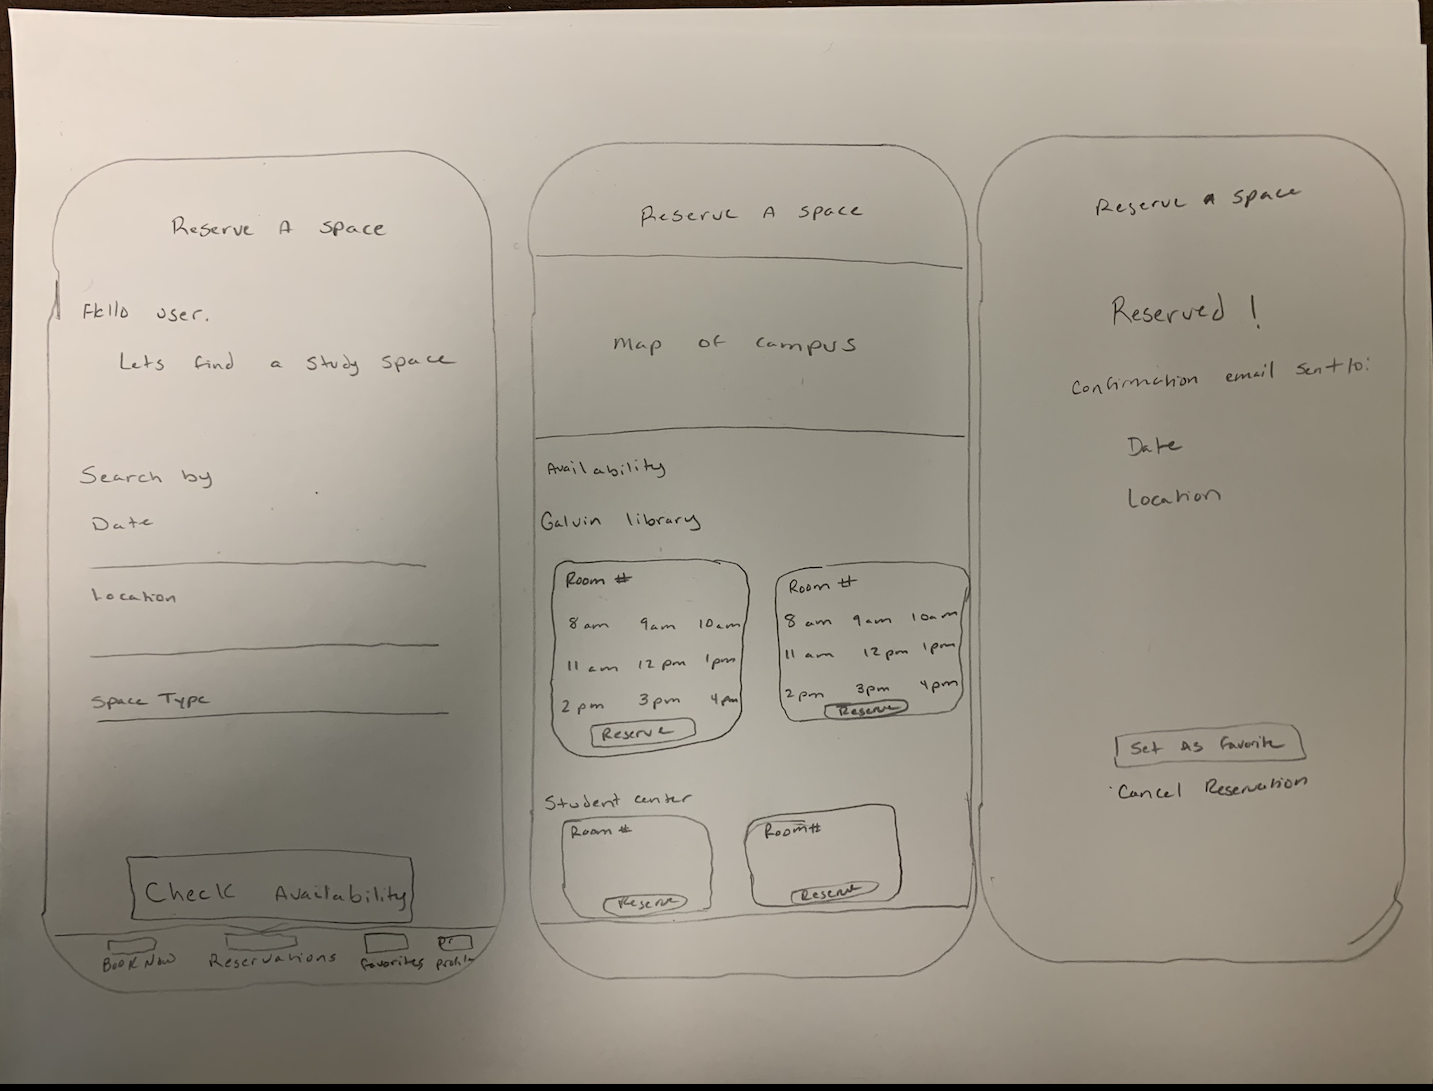 Reserve A space
Hello user.
Lets find a study space
Search by
Date
Location
Space Type
Check Availability
Book Now Reservations favorites profile
Reserve A space
Map of campus
Availability
Galvin library
Room #
8 am 9am 10am
11 am 12 pm 1pm
2 pm 3 pm 4 pm
Reserve
Room #
8 am 9am 10am
11 am 12 pm 1pm
2 pm 3pm 4pm
Reserve
Student center
Room #
Reserve
Room #
Reserve
Reserve A space
Reserved !
Confirmation email sent to:
Date
Location
Set As favorite
Cancel Reservation